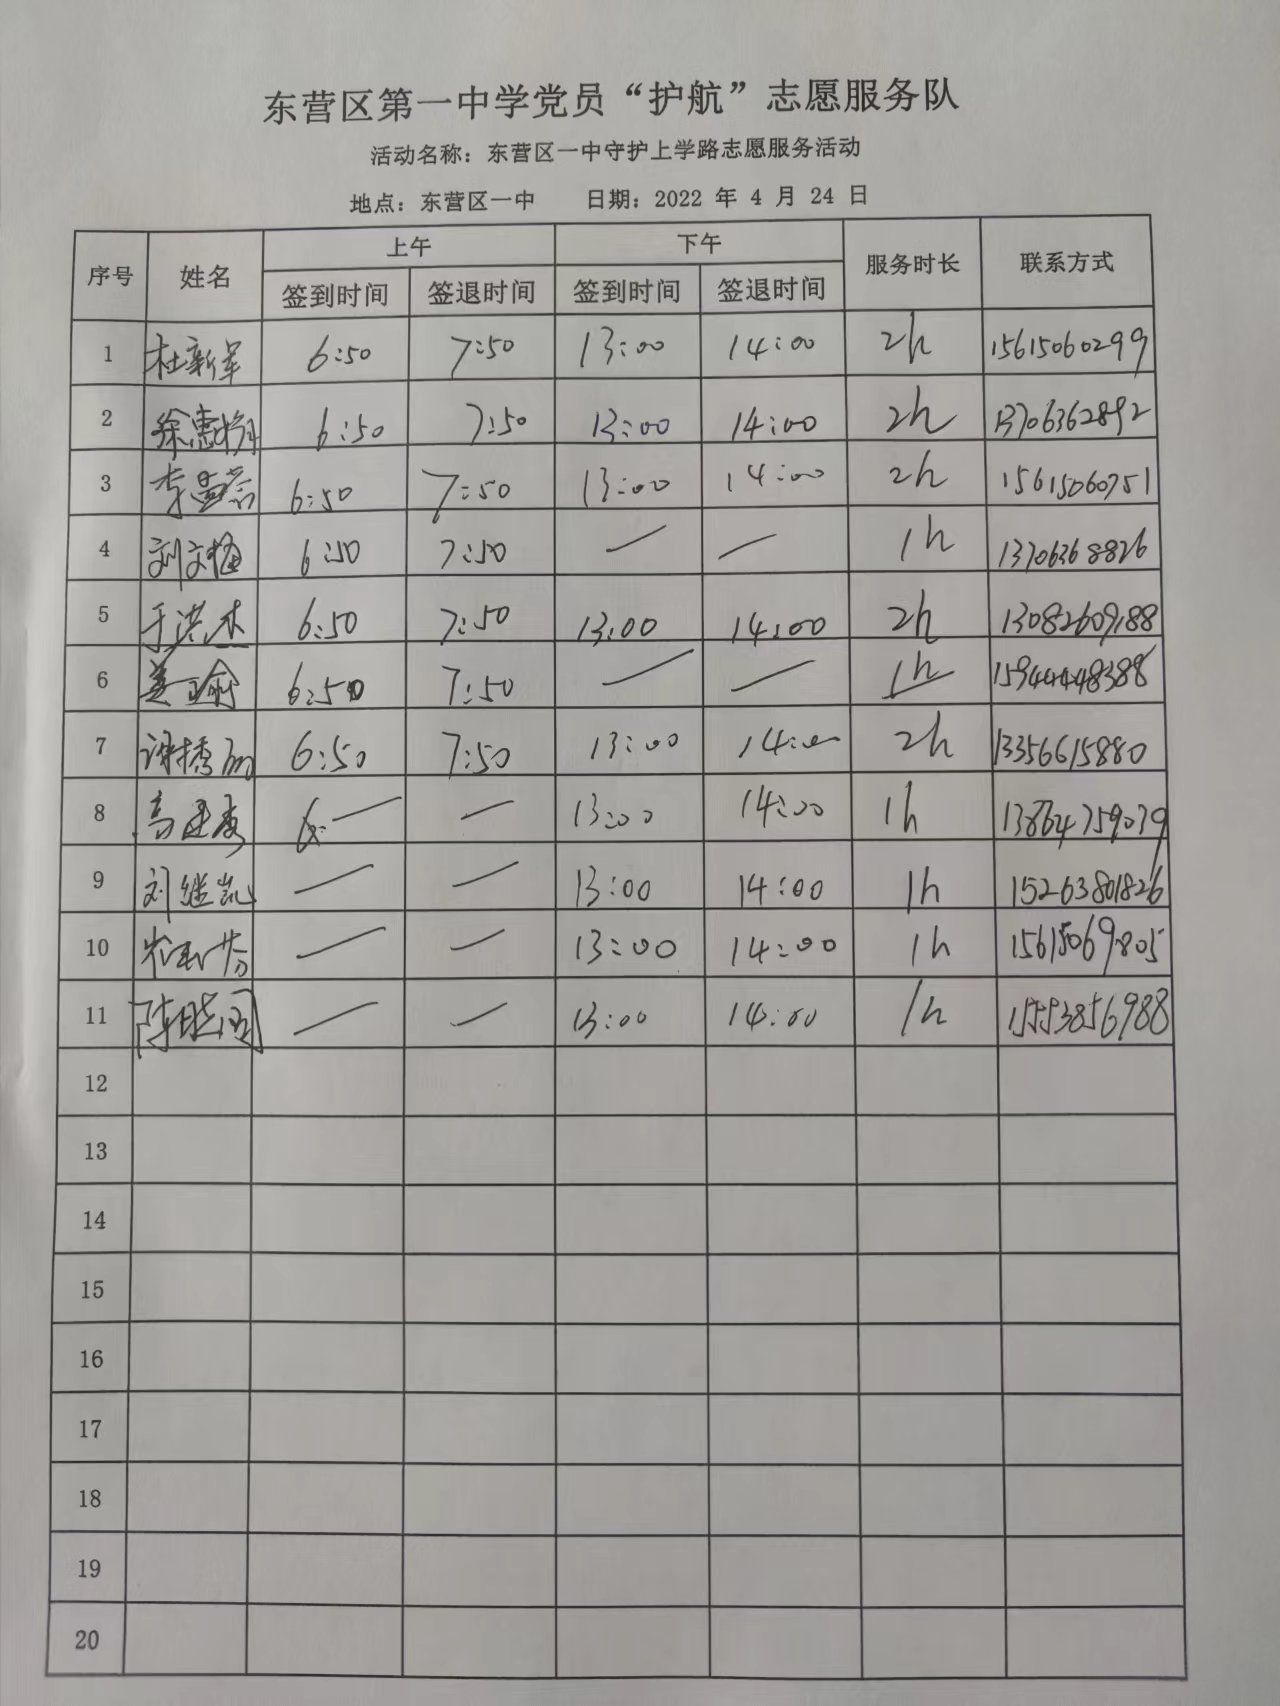 东营区第一中学党员“护航”志愿服务队
活动名称：东营区一中守护上学路志愿服务活动
地点：东营区一中 日期：2022 年 4 月 24 日
序号 姓名 上午 下午 服务时长 联系方式
签到时间 签退时间 签到时间 签退时间
1 杜新军 6:50 7:50 13:00 14:00 2h 15615060299
2 徐惠 6:50 7:50 13:00 14:00 2h 13706362892
3 李 6:50 7:50 13:00 14:00 2h 15615060751
4 刘文 6:50 7:50 — — 1h 13706368826
5 于洪 6:50 7:50 13:00 14:00 2h 13082609188
6 姜 6:50 7:50 — — 1h
7 谢 6:50 7:50 13:00 14:00 2h 13356615880
8 高建 — — 13:00 14:00 1h 13864759039
9 刘继凯 — — 13:00 14:00 1h 15263801826
10 — — 13:00 14:00 1h 15615069805
11 陈晓 — — 13:00 14:00 1h 15553856988
12
13
14
15
16
17
18
19
20